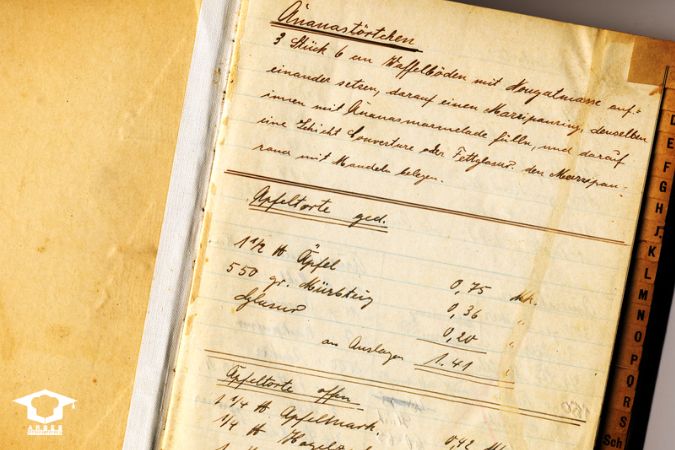 Ananastörtchen
3 Stück 6 cm Waffelböden mit Nougatmasse auf-
einander setzen, darauf einen Marzipanring, denselben
innen mit Ananasmarmelade füllen, und darauf
eine Schicht Couverture oder Fettglasur. den Marzipan-
rand mit Mandeln belegen.
Apfeltorte ged.
1 1/2 ℔ Äpfel 0,75 Mk.
550 gr. Mürbteig 0,36 "
Glasur 0,20 "
an Auslagen 1.41 "
Apfeltorte offen
1 1/4 ℔ Apfelmark.
1/4 ℔
D
E
F
G
H
J
K
L
M
N
O
P
Q
R
S
Sch